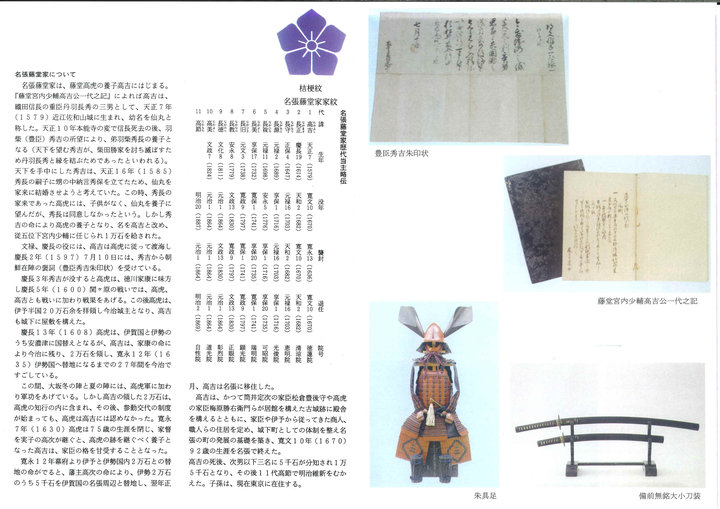 桔梗紋
名張藤堂家家紋
名張藤堂家について
　名張藤堂家は、藤堂高虎の養子高吉にはじまる。
『藤堂宮内少輔高吉公一代之記』によれば高吉は、
織田信長の重臣丹羽長秀の三男として、天正7年
(1579)近江佐和山城に生まれ、幼名を仙丸と
称した。天正10年本能寺の変で信長死去の後、羽
柴(豊臣)秀吉の所望により、弟羽柴秀長の養子と
なる(天下を望む秀吉が、柴田勝家を討ち滅ぼすた
め丹羽長秀と縁を結ぶためであったといわれる)。
天下を手中にした秀吉は、天正16年(1585)
秀長の嗣子に甥の中納言秀保を立てたため、仙丸を
家来に結番させようと考えていた。この時、秀長の
家来であった高虎には、子供がなく、仙丸を養子に
望んだが、秀長は同意しなかったという。しかし秀
吉の命により高虎の養子となり、名を高吉と改め、
従五位下宮内少輔に任じられ1万石を給された。
　文禄、慶長の役には、高吉は高虎に従って渡海し
慶長2年(1597)7月10日には、秀吉から朝
鮮在陣の褒詞(豊臣秀吉朱印状)を受けている。
　慶長3年秀吉が没すると高虎は、徳川家康に味方
し慶長5年(1600)関ヶ原の戦いでは、高虎、
高吉とも戦いに加わり戦果をあげる。この後高虎は、
伊予半国20万石余を拝領し今治城主となり、高吉
も城下に屋敷を構えた。
　慶長13年(1608)高虎は、伊賀国と伊勢の
うち安濃津に国替えとなるが、高吉は、家康の命に
より今治に残り、2万石を領し、寛永12年(16
35)伊勢国へ替地になるまでの27年間を今治で
すごしている。
　この間、大坂冬の陣と夏の陣には、高虎軍に加わ
り軍功をあげている。しかし高吉の領した2万石は、
高虎の知行の内に含まれ、その後、参勤交代の制度
が始まっても、高虎は高吉には認めなかった。寛永
7年(1630)高虎は75歳の生涯を閉じ、家督
を実子の高次が継ぐと、高虎の跡を継ぐべく養子と
なった高吉は、家臣の格を甘受することとなった。
　寛永12年幕府より伊予と伊勢国内2万石との替
地の命がでると、藩主高次の命により、伊勢2万石
のうち5千石を伊賀国の名張周辺と替地し、翌年正
名張藤堂家歴代当主略伝
代 諱 生年 没年 襲封 退任 院号
1 高吉 天正7 (1579) 寛文10 (1670) 寛永13 (1636) 寛文10 (1670) 徳蓮院
2 長正 慶長19 (1614) 天和2 (1682) 寛文10 (1670) 天和2 (1682) 清涼院
3 長守 正保4 (1647) 元禄16 (1703) 天和2 (1682) 元禄16 (1703) 恵明院
4 長源 元禄2 (1689) 享保1 (1716) 元禄16 (1703) 享保1 (1716) 光俊院
5 長熙 元禄11 (1698) 安永5 (1776) 享保1 (1716) 享保20 (1735) 可昭院
6 長美 享保17 (1732) 寛保1 (1741) 享保20 (1735) 寛保1 (1741) 瑞明院
7 長旧 元文3 (1738) 寛政9 (1797) 寛保1 (1741) 寛政9 (1797) 顕光院
8 長教 安永 文政13 (1830) 寛政9 (1797) 文政13 (1830) 正眼院
9 長徳 文化8 (1811) 元治1 (1864) 文政13 (1830) 元治1 (1864) 彰烈院
10 元治1 (1864) 元治1 (1864) 元治1 (1864)
11 高節 明治20 (1887) 元治1 (1864) 明治2 (1869) 自性院
月、高吉は名張に移住した。
　高吉は、かつて筒井定次の家臣松倉豊後守や高虎
の家臣梅原勝右衛門らが居館を構えた古城跡に殿舎
を構えるとともに、家臣や伊予から従ってきた商人、
職人らの住居を定め、城下町としての体制を整え名
張の町の発展の基礎を築き、寛文10年(1670)
92歳の生涯を名張で終えた。
高吉の死後、次男以下三名に5千石が分知され1万
5千石となり、その後11代高節で明治維新をむか
えた。子孫は、現在東京に在住する。
豊臣秀吉朱印状
藤堂宮内少輔高吉公一代之記
朱具足
備前無銘大小刀装